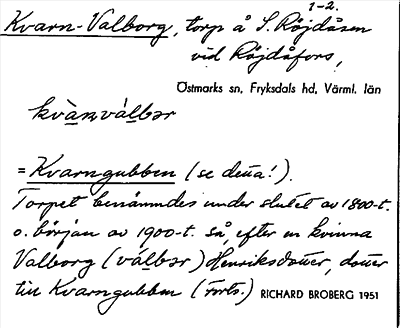 1-2.
Kvarn-Valborg, torp å S. Röjdåsen
vid Röjdåfors,
Östmarks sn, Fryksdals hd, Värml. län
kvànválbər
= Kvarngubben (se detta!).
Torpet benämndes under slutet av 1800-t.
o. början av 1900-t. så, efter en kvinna
Valborg (válbər) Henriksdotter, dotter
till Kvarngubben (Forts.) RICHARD BROBERG 1951